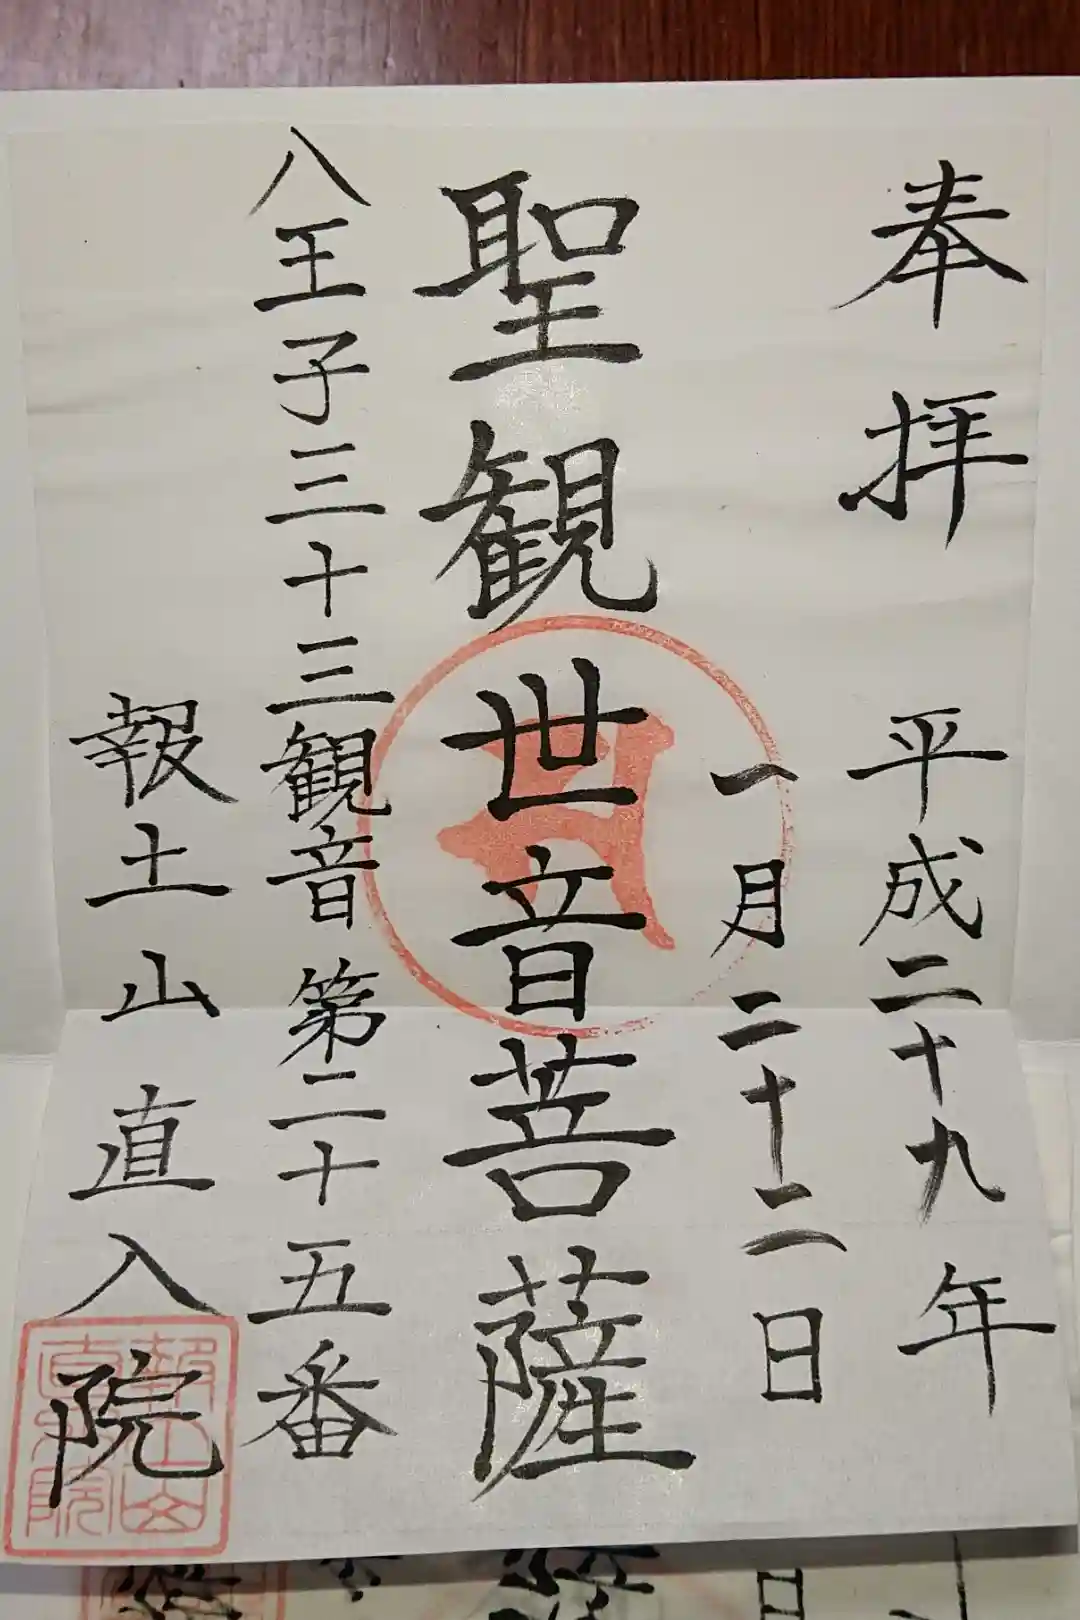 奉拝
平成二十九年
一月二十二日
聖観世音菩薩
八王子三十三観音第二十五番
報土山直入院
報土山
直入院